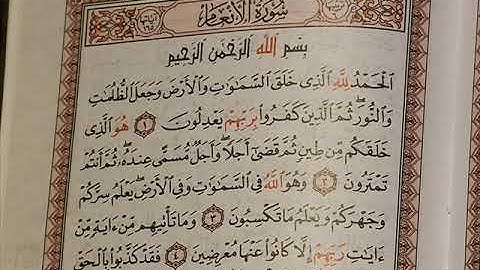 سُورَةُ الأَنْعَامِ
بِسْمِ اللَّهِ الرَّحْمَٰنِ الرَّحِيمِ
الْحَمْدُ لِلَّهِ الَّذِي خَلَقَ السَّمَٰوَٰتِ وَالْأَرْضَ وَجَعَلَ الظُّلُمَٰتِ
وَالنُّورَ ۖ ثُمَّ الَّذِينَ كَفَرُوا بِرَبِّهِمْ يَعْدِلُونَ ١ هُوَ الَّذِي
خَلَقَكُم مِّن طِينٍ ثُمَّ قَضَىٰ أَجَلًا ۖ وَأَجَلٌ مُّسَمًّى عِندَهُ ۖ ثُمَّ أَنتُمْ
تَمْتَرُونَ ٢ وَهُوَ اللَّهُ فِي السَّمَٰوَٰتِ وَفِي الْأَرْضِ ۖ يَعْلَمُ سِرَّكُمْ
وَجَهْرَكُمْ وَيَعْلَمُ مَا تَكْسِبُونَ ٣ وَمَا تَأْتِيهِم مِّنْ ءَايَةٍ مِّنْ
ءَايَٰتِ رَبِّهِمْ إِلَّا كَانُوا عَنْهَا مُعْرِضِينَ ٤ فَقَدْ كَذَّبُوا بِالْحَقِّ